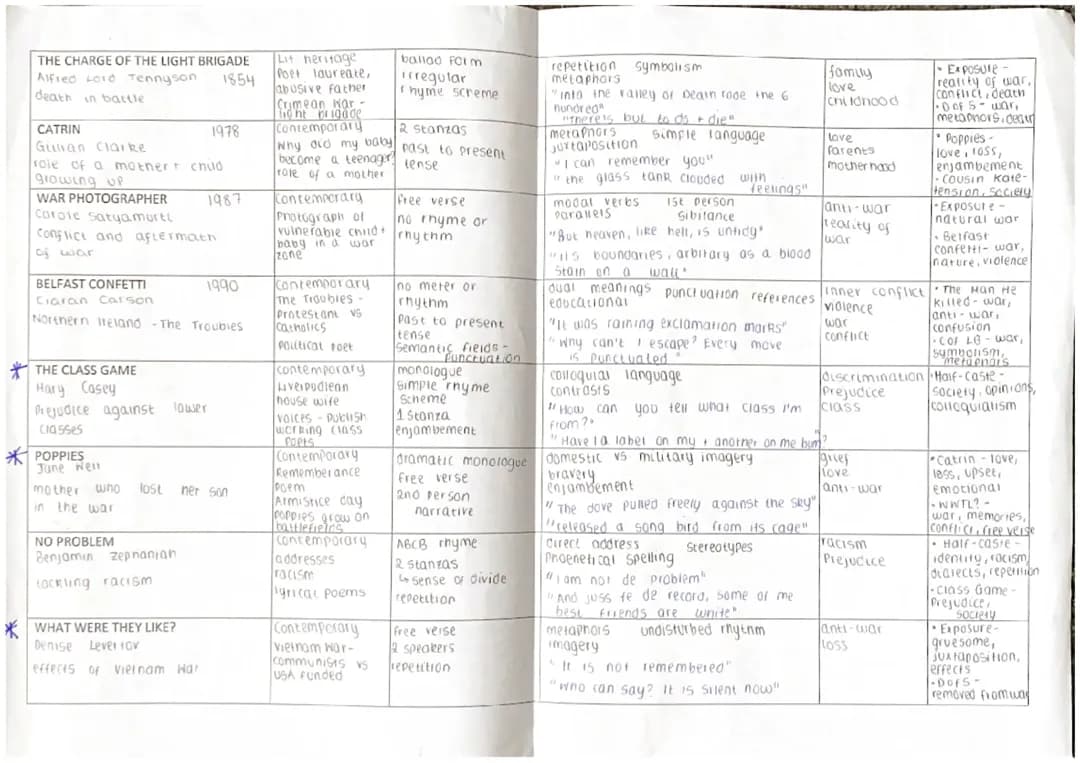 THE CHARGE OF THE LIGHT BRIGADE
Alfred Lord Tennyson 1854
death in battle
Lit heritage
Poet laureate,
abusive father
Crimean War -
light brigade
ballad form
irregular
rhyme scheme
repetition symbolism
metaphors
"Into the valley of Death rode the 6
hundred"
"There's but to do + die"
family
love
childhood
• Exposure -
reality of war,
conflict, death
• D of S - war,
metaphors, death
CATRIN 1978
Gillian Clarke
role of a mother + child
growing up
Contemporary
Why did my baby
become a teenager?
role of a mother
2 stanzas
past to present
tense
metaphors simple language
juxtaposition
"I can remember you"
"the glass tank clouded with
feelings"
love
parents
motherhood
• Poppies -
love, loss,
enjambement
• Cousin Kate -
tension, society
WAR PHOTOGRAPHER 1987
Carole Satyamurti
Conflict and aftermath
of war
Contemporary
Photograph of
vulnerable child +
baby in a war
zone
free verse
no rhyme or
rhythm
modal verbs 1st person
parallels sibilance
"But heaven, like hell, is untidy"
"its boundaries, arbitary as a blood
stain on a wall"
anti-war
reality of
war
• Exposure -
natural war
• Belfast
confetti - war,
nature, violence
BELFAST CONFETTI 1990
Ciaran Carson
Northern Ireland - The Troubles
Contemporary
The Troubles -
Protestant vs
Catholics
political poet
no meter or
rhythm
Past to present
tense
semantic fields -
punctuation
dual meanings punctuation references
educational
"It was raining exclamation marks"
"Why can't I escape? Every move
is punctuated"
inner conflict
violence
war
conflict
• The Man He
Killed - war,
anti-war,
confusion
• C of LB - war,
symbolism,
metaphors
* THE CLASS GAME
Mary Casey
Prejudice against lower
classes
contemporary
Liverpudlian
house wife
voices - publish
working class
poets
monologue
simple rhyme
scheme
1 stanza
enjambement
colloquial language
contrasts
"How can you tell what class I'm
from?"
"Have I a label on my + another on me bum?"
discrimination
Prejudice
class
• Half-caste -
society, opinions,
colloquialism
* POPPIES
Jane Weir
mother who lost her son
in the war
Contemporary
Rememberance
poem
Armistice day
poppies grow on
battlefields
dramatic monologue
free verse
2nd person
narrative
domestic vs military imagery
bravery
enjambement
"The dove pulled freely against the sky"
"released a song bird from its cage"
grief
love
anti-war
• Catrin - love,
loss, upset,
emotional
• WWTL? -
war, memories,
conflict, free verse
NO PROBLEM
Benjamin Zephaniah
tackling racism
Contemporary
addresses
racism
lyrical poems
ABCB rhyme
2 stanzas
↳ sense of divide
repetition
direct address stereotypes
Phoenetical spelling
"I am not de problem"
"And juss fe de record, some of me
best friends are white"
racism
Prejudice
• Half-caste -
identity, racism,
dialects, repetition
• Class Game -
Prejudice,
society
* WHAT WERE THEY LIKE?
Denise Levertov
effects of Vietnam War
Contemporary
Vietnam War -
communists vs
USA funded
free verse
2 speakers
repetition
metaphors undisturbed rhythm
imagery
"It is not remembered"
"Who can say? It is silent now"
anti-war
loss
• Exposure -
gruesome,
juxtaposition,
effects
• D of S -
removed from war